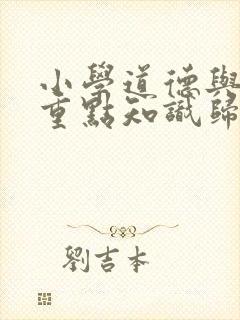 小學道德與
重點知識歸
劉吉本